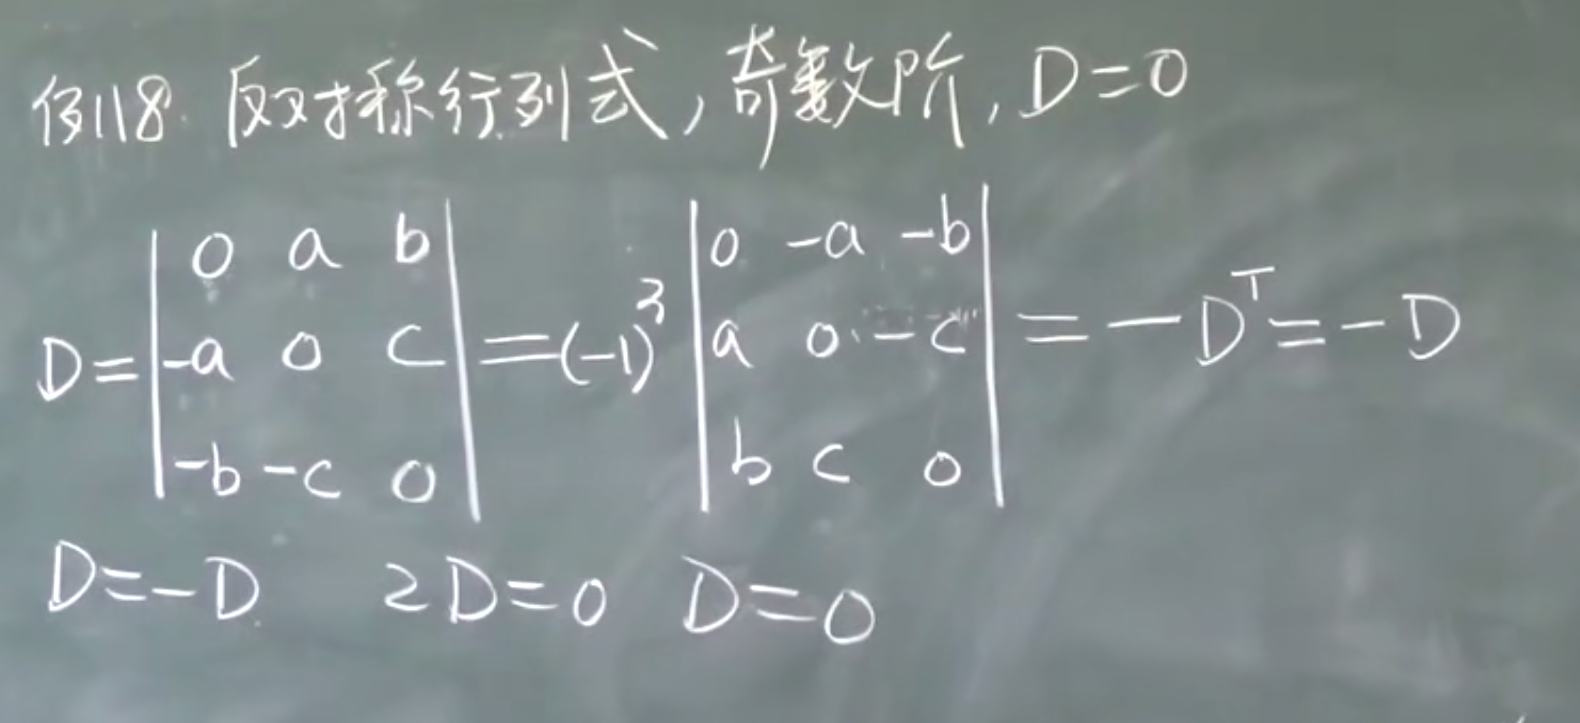 例18. 反对称行列式,奇数阶,D=0
D=|0 a b; -a 0 c; -b -c 0|=(-1)³|0 -a -b; a 0 -c; b c 0|=-Dᵀ=-D
D=-D 2D=0 D=0